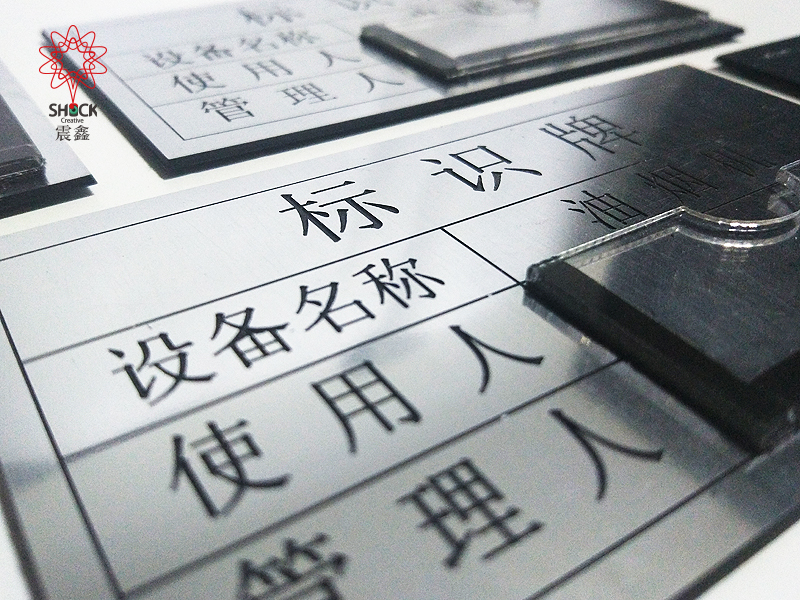 SHOCK
Creative
震鑫
标识
设备名称
使用人
管理人
标识牌
设备名称 油烟机
使用人
管理人